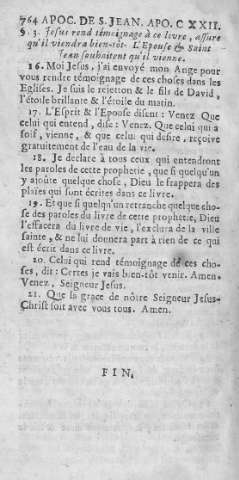 764 APOC. DE S. JEAN. APO. C XXII.
§. 3. Jesus rend témoignage à ce livre, assure
qu'il viendra bien-tôt. L'Epouse & Saint
Jean souhaitent qu'il vienne.
16. Moi Jesus, j'ai envoyé mon Ange pour
vous rendre témoignage de ces choses dans les
Eglises. Je suis le rejetton & le fils de David,
l'étoile brillante & l'étoile du matin.
17. L'Esprit & l'Epouse disent : Venez Que
celui qui entend, dise : Venez. Que celui qui a
soif, vienne, & que celui qui desire, reçoive
gratuitement de l'eau de la vie.
18. Je declare à tous ceux qui entendront
les paroles de cette prophetie, que si quelqu'un
y ajoûte quelque chose, Dieu le frappera des
plaies qui sont écrites dans ce livre.
19. Et que si quelqu'un retranche quelque cho-
se des paroles du livre de cette prophetie, Dieu
l'effacera du livre de vie, l'exclura de la ville
sainte, & ne lui donnera part à rien de ce qui
est écrit dans ce livre.
20. Celui qui rend témoignage de ces cho-
ses, dit : Certes je vais bien-tôt venir. Amen.
Venez, Seigneur Jesus.
21. Que la grace de nôtre Seigneur Jesus-
Christ soit avec vous tous. Amen.
FIN.